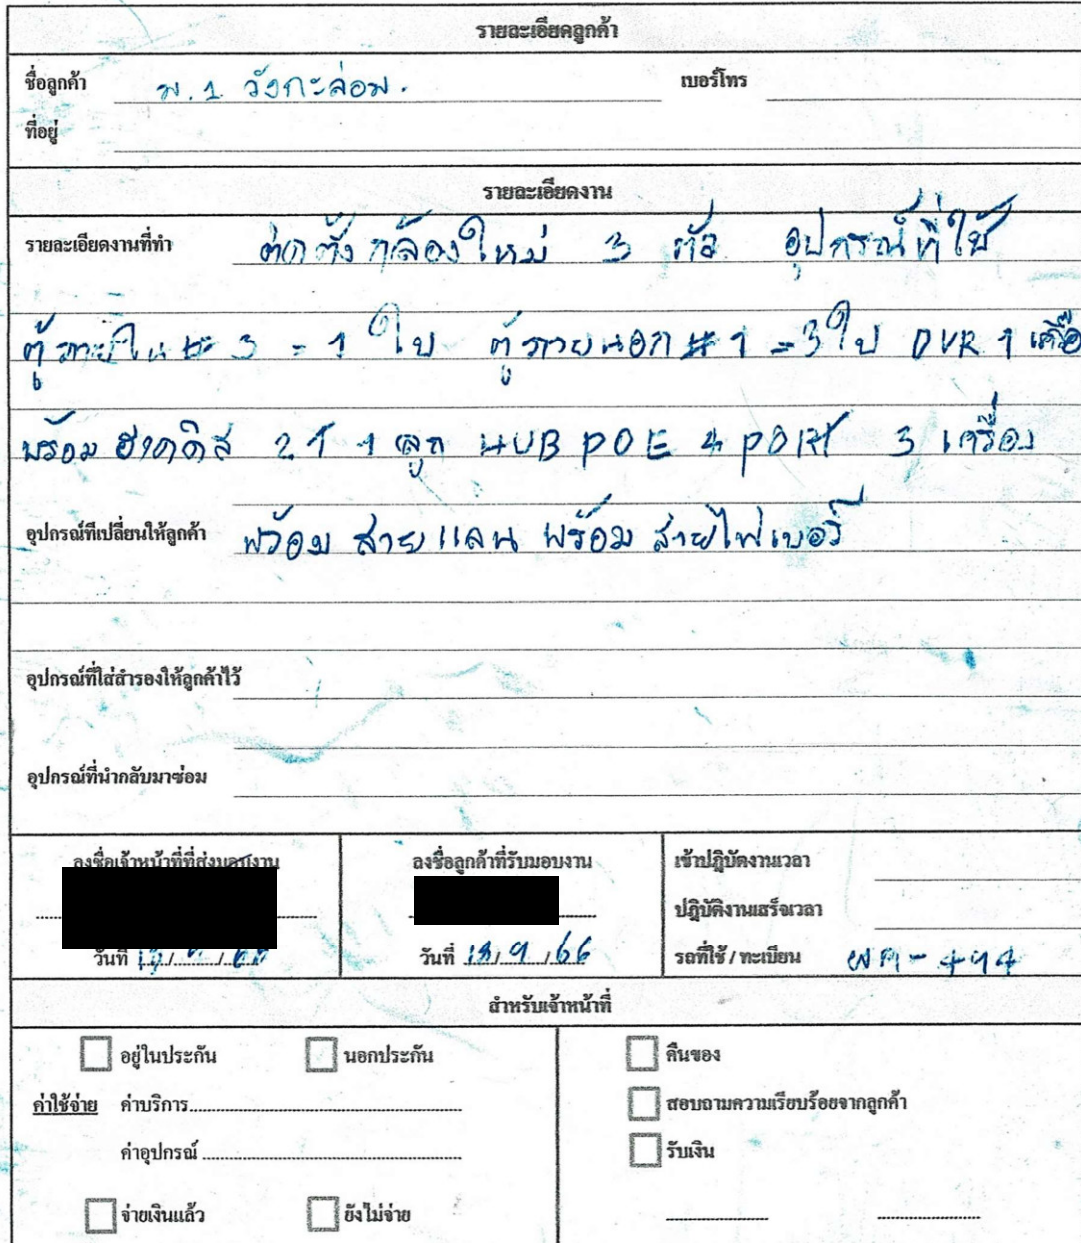 รายละเอียดลูกค้า
ชื่อลูกค้า ม.1 วังกะล่อม. เบอร์โทร
ที่อยู่
รายละเอียดงาน
รายละเอียดงานที่ทำ ติดตั้งกล้องใหม่ 3 ตัว อุปกรณ์ที่ใช้
ตู้ภายใน # 3 = 1 ใบ ตู้ภายนอก # 1 = 3 ใบ DVR 1 เครื่อ
พร้อม ฮาดดิส 2T 1 ลูก HUB POE 4 PORT 3 เครื่อง
อุปกรณ์ที่เปลี่ยนให้ลูกค้า พร้อม สายแลน พร้อม สายไฟเบอร์
อุปกรณ์ที่ใส่สำรองให้ลูกค้าไว้
อุปกรณ์ที่นำกลับมาซ่อม
ลงชื่อเจ้าหน้าที่ที่ส่งมอบงาน ลงชื่อลูกค้าที่รับมอบงาน เข้าปฏิบัติงานเวลา
ปฏิบัติงานเสร็จเวลา
วันที่ วันที่ 13/9/66 รถที่ใช้ / ทะเบียน
สำหรับเจ้าหน้าที่
อยู่ในประกัน นอกประกัน คืนของ
ค่าใช้จ่าย ค่าบริการ สอบถามความเรียบร้อยจากลูกค้า
ค่าอุปกรณ์ รับเงิน
จ่ายเงินแล้ว ยังไม่จ่าย